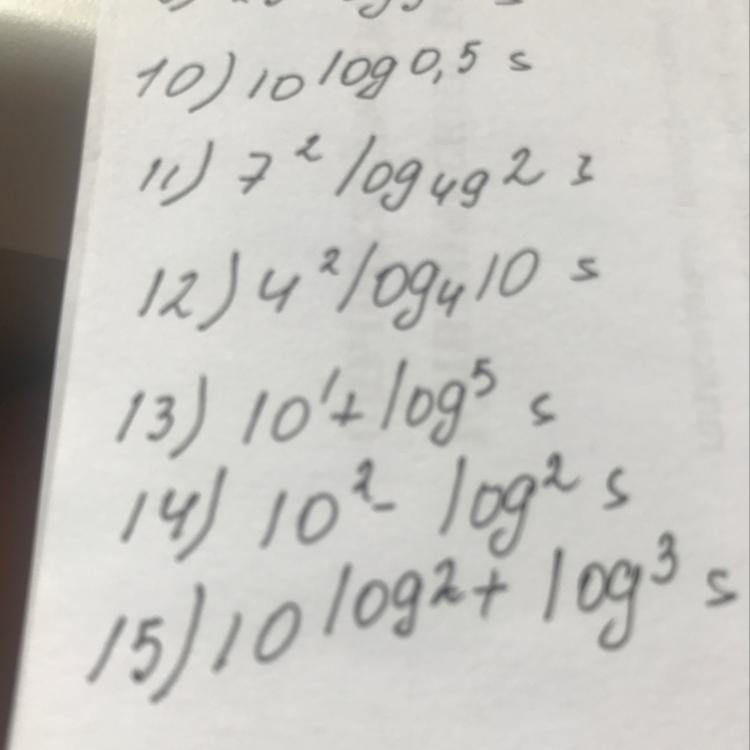 10) 10 log 0,5 s
11) 7² log₄₉ 2 s
12) 4² log₄ 10 s
13) 10¹ + log⁵ s
14) 10² - log² s
15) 10 log² + log³ s